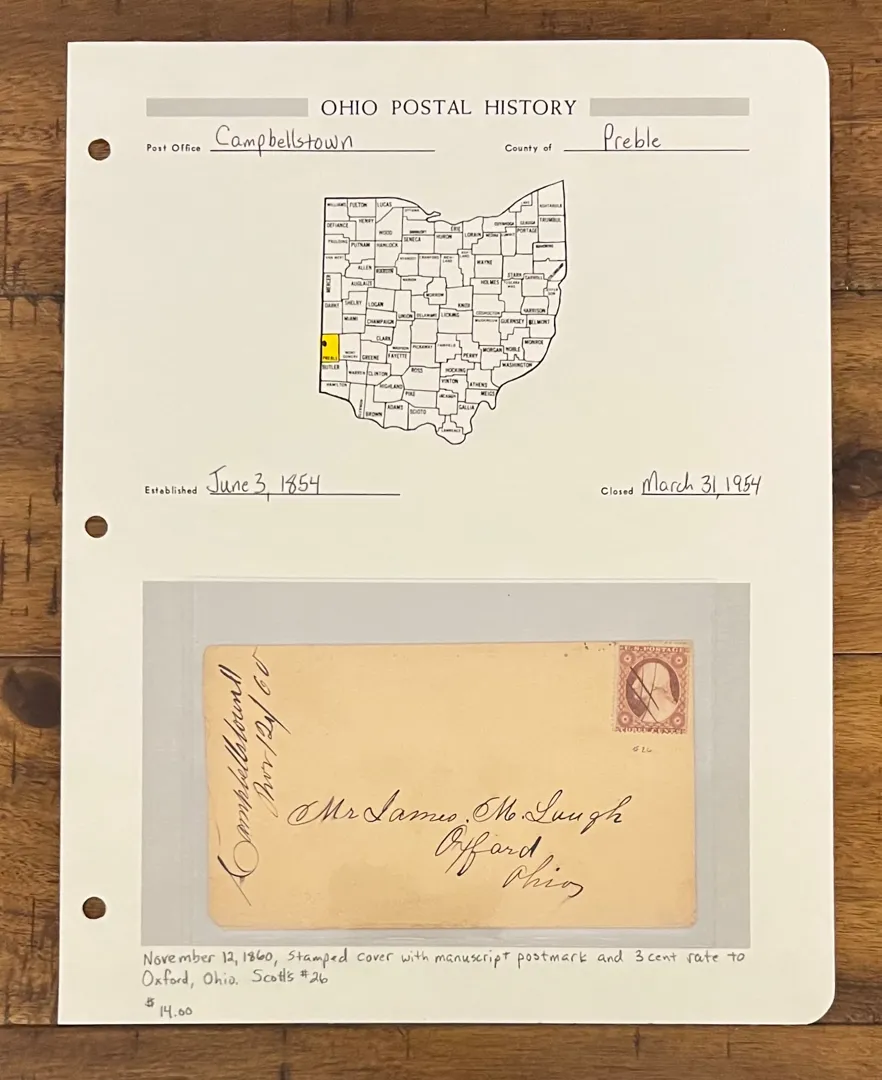 OHIO POSTAL HISTORY
Post Office Campbellstown County of Preble
WILLIAMS FULTON LUCAS
ASHTABULA
DEFIANCE HENRY WOOD SENECA HURON ERIE LORAIN GEAUGA TRUMBULL
PORTAGE
PAULDING PUTNAM HANCOCK
ALLEN HARDIN WAYNE STARK
MERCER AUGLAIZE HOLMES CARROLL
DARKE SHELBY LOGAN MORROW KNOX HARRISON
MIAMI CHAMPAIGN UNION DELAWARE LICKING COSHOCTON GUERNSEY BELMONT
CLARK MONROE
PREBLE GREENE FAYETTE PICKAWAY FAIRFIELD PERRY MORGAN NOBLE
BUTLER WARREN CLINTON ROSS HOCKING WASHINGTON
HAMILTON HIGHLAND PIKE VINTON ATHENS
BROWN ADAMS SCIOTO JACKSON GALLIA MEIGS
LAWRENCE
Established June 3, 1854 Closed March 31, 1954
Campbellstown
Nov 12/60
U.S. POSTAGE
THREE CENTS
Mr James. M. Lough
Oxford
Ohio
November 12, 1860, stamped cover with manuscript postmark and 3 cent rate to
Oxford, Ohio. Scott's #26
$ 14.00